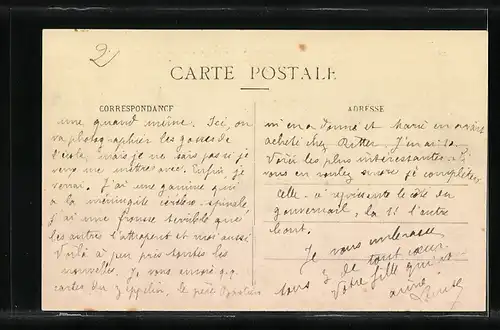 2)
CARTE POSTALE
CORRESPONDANCE
une quand même. Ici, on
va photographier les gosses de
l'école, mais je ne sais pas si je
veux me mettre avec. Enfin, je
verrai. J'ai une gamine qui
a la méningite cérébro-spinale
j'ai une frousse terrible que
les autres l'attrapent et moi aussi
Voilà à peu près toutes les
nouvelles. Je vous envoie q.q.
cartes du Zeppelin, le petit
ADRESSE
m'en a donné et Marie en avait
acheté chez Ritter. J'en ai 10.
Voici les plus intéressantes. Si
vous en voulez encore je compléterai
Celle-ci représente le côté du
gouvernail, la 11 l'autre
bout.
Je vous embrasse
tous 3 de tout cœur
Votre fille qui vous
aime
Louise